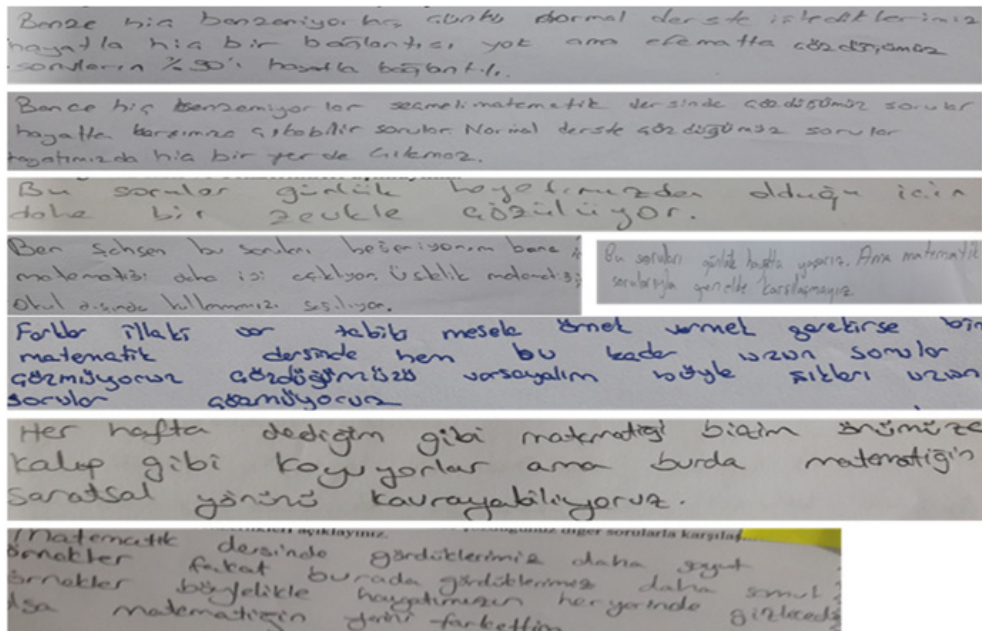 Bence hiç benzemiyor hiç çünkü normal derste işlediklerimiz
hayatla hiç bir bağlantısı yok ama efematta çözdüğümüz
soruların %90'ı hayatla bağlantılı.
Bence hiç benzemiyorlar seçmeli matematik dersinde çözdüğümüz sorular
hayatta karşımıza çıkabilir sorular. Normal derste çözdüğümüz sorular
hayatımızda hiç bir yerde çıkmaz.
Bu sorular günlük hayatımızdan olduğu için
daha bir zevkle çözülüyor.
Ben şahsen bu soruları beğeniyorum bana
matematiği daha iyi açıklıyor. Üstelik matematiği
Okul dışında kullanmamızı sağlıyor.
Bu soruları günlük hayatta yaşarız. Ama matematik
sorularıyla genelde karşılaşmayız.
Farklar illaki var tabiki mesela örnek vermek gerekirse biz
matematik dersinde hem bu kadar uzun sorular
çözmüyoruz çözdüğümüzü varsayalım böyle şıkları uzun
sorular çözmüyoruz
Her hafta dediğim gibi matematiği bizim önümüze
kalıp gibi koyuyorlar ama burda matematiğin
sanatsal yönünü kavrayabiliyoruz.
açıklayınız. diğer sorularla
Matematik dersinde gördüklerimiz daha soyut
örnekler fakat burada gördüklerimiz daha somut
örnekler böylelikle hayatımızın her yerinde
matematiğin yerini farkettim